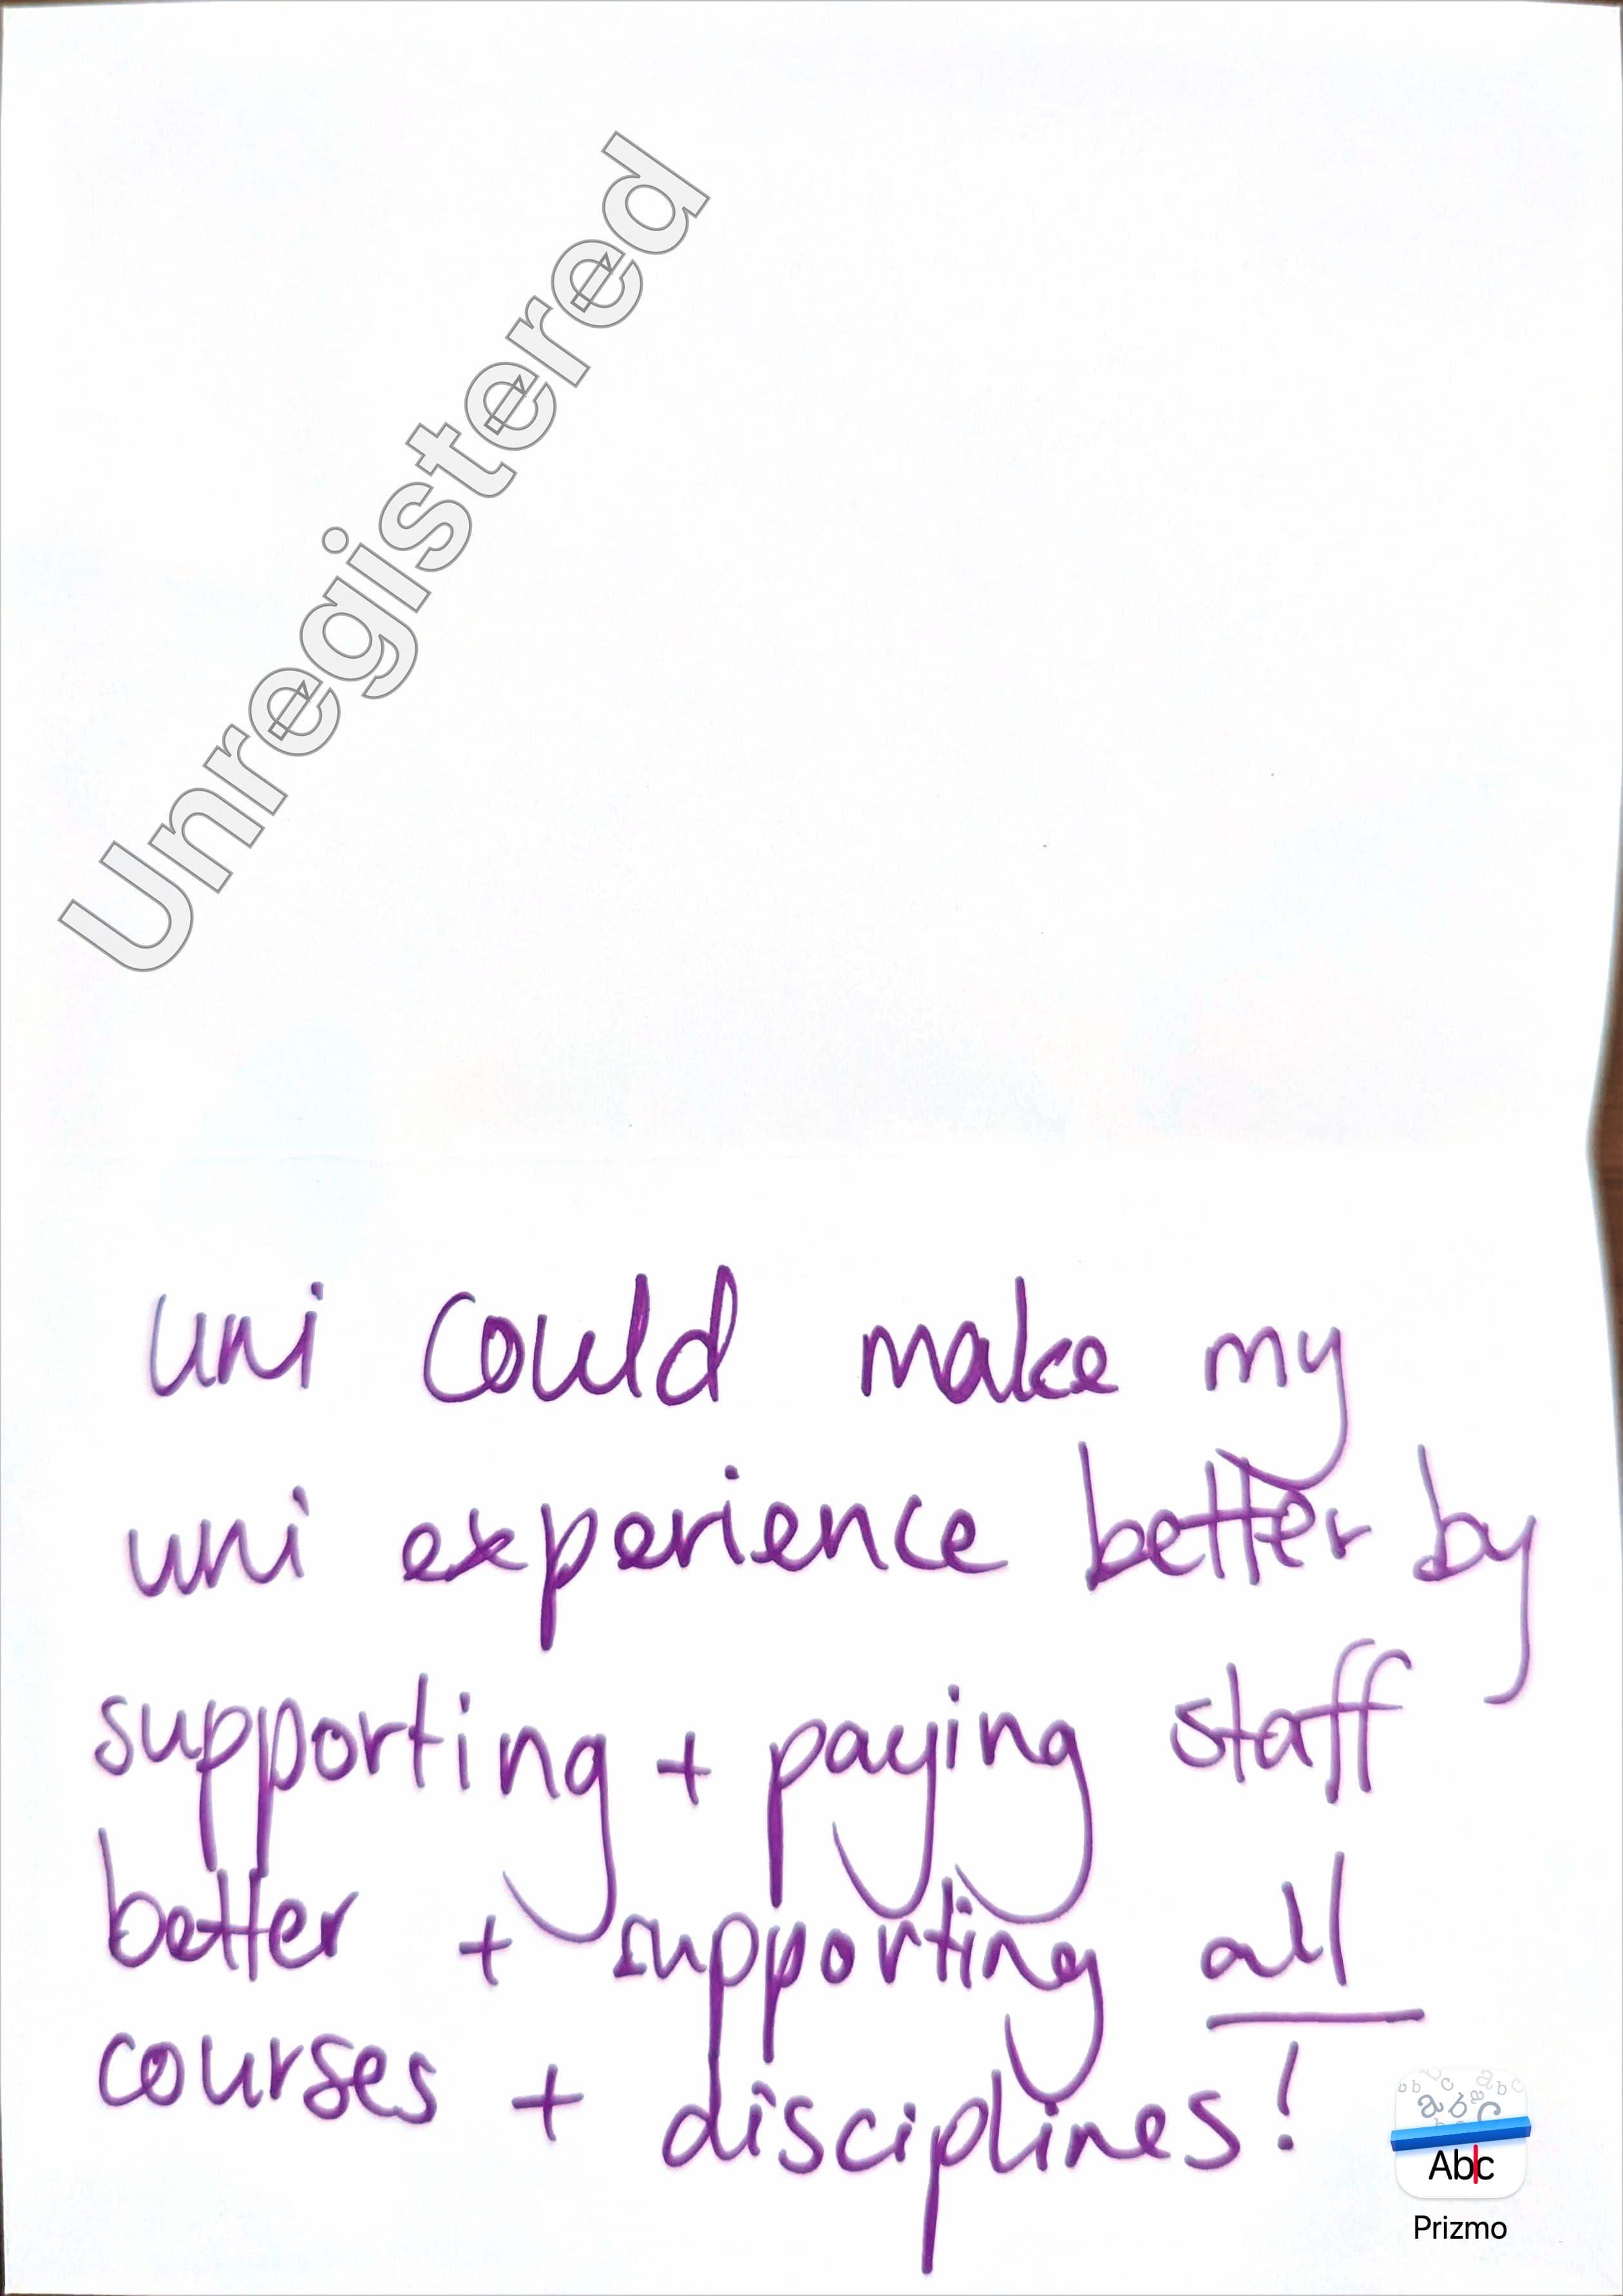 Unregistered
uni could make my
uni experience better by
supporting + paying staff
better + supporting all
courses + disciplines!
Abc
Prizmo